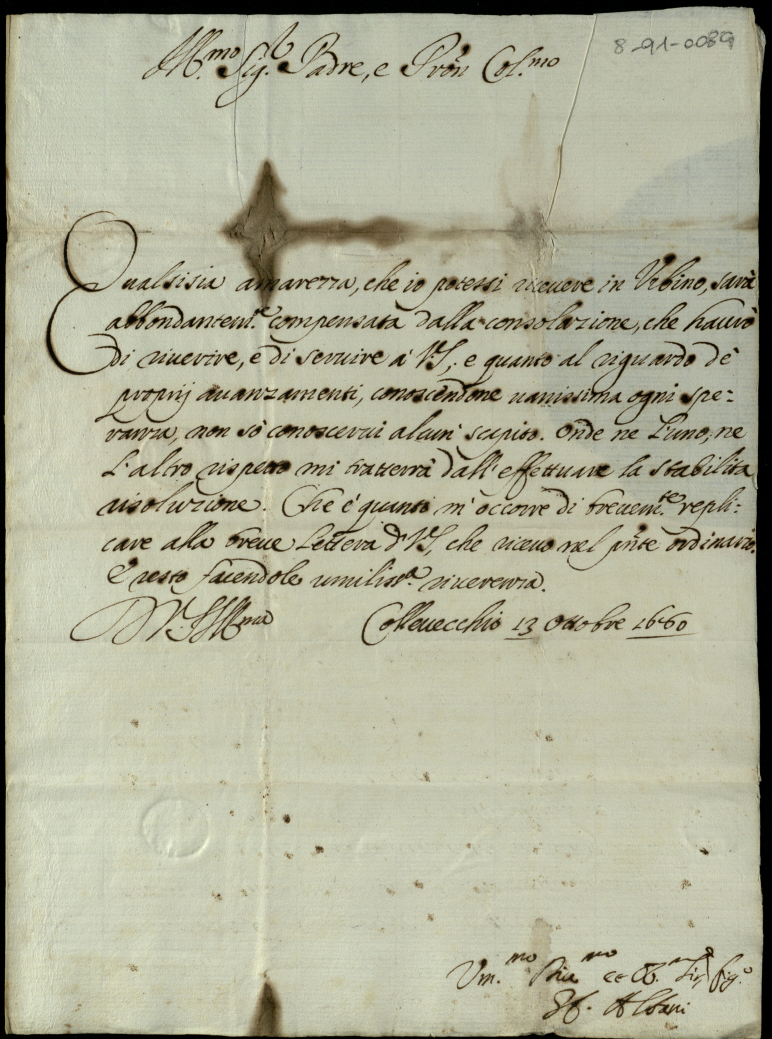 8-91-0089
Ill.mo Sig.r Padre, e Pron Col.mo
Qualsisia amarezza, che io potessi riceuere in Urbino, sarà
abbondantem.te compensata dalla consolazione, che haurò
di riuerire, e di seruire à V.S., e quanto al riguardo de
proprij auanzamenti, conoscendone uanissima ogni spe-
ranza, non sò conoscerui alcun' scapito. Onde ne l'uno, ne
l'altro rispetto mi tratterrà dall'effettuare la stabilita
risoluzione. Che è quanto m'occorre di breuem.te repli-
care alla breue lettera di V.S., che riceuo nel pnte ordinario.
E resto facendole umiliss.a riuerenza.
Di V.S. Ill.ma Colleuecchio 13 Ottobre 1660
Um.mo et Obb. fig.o
Albani